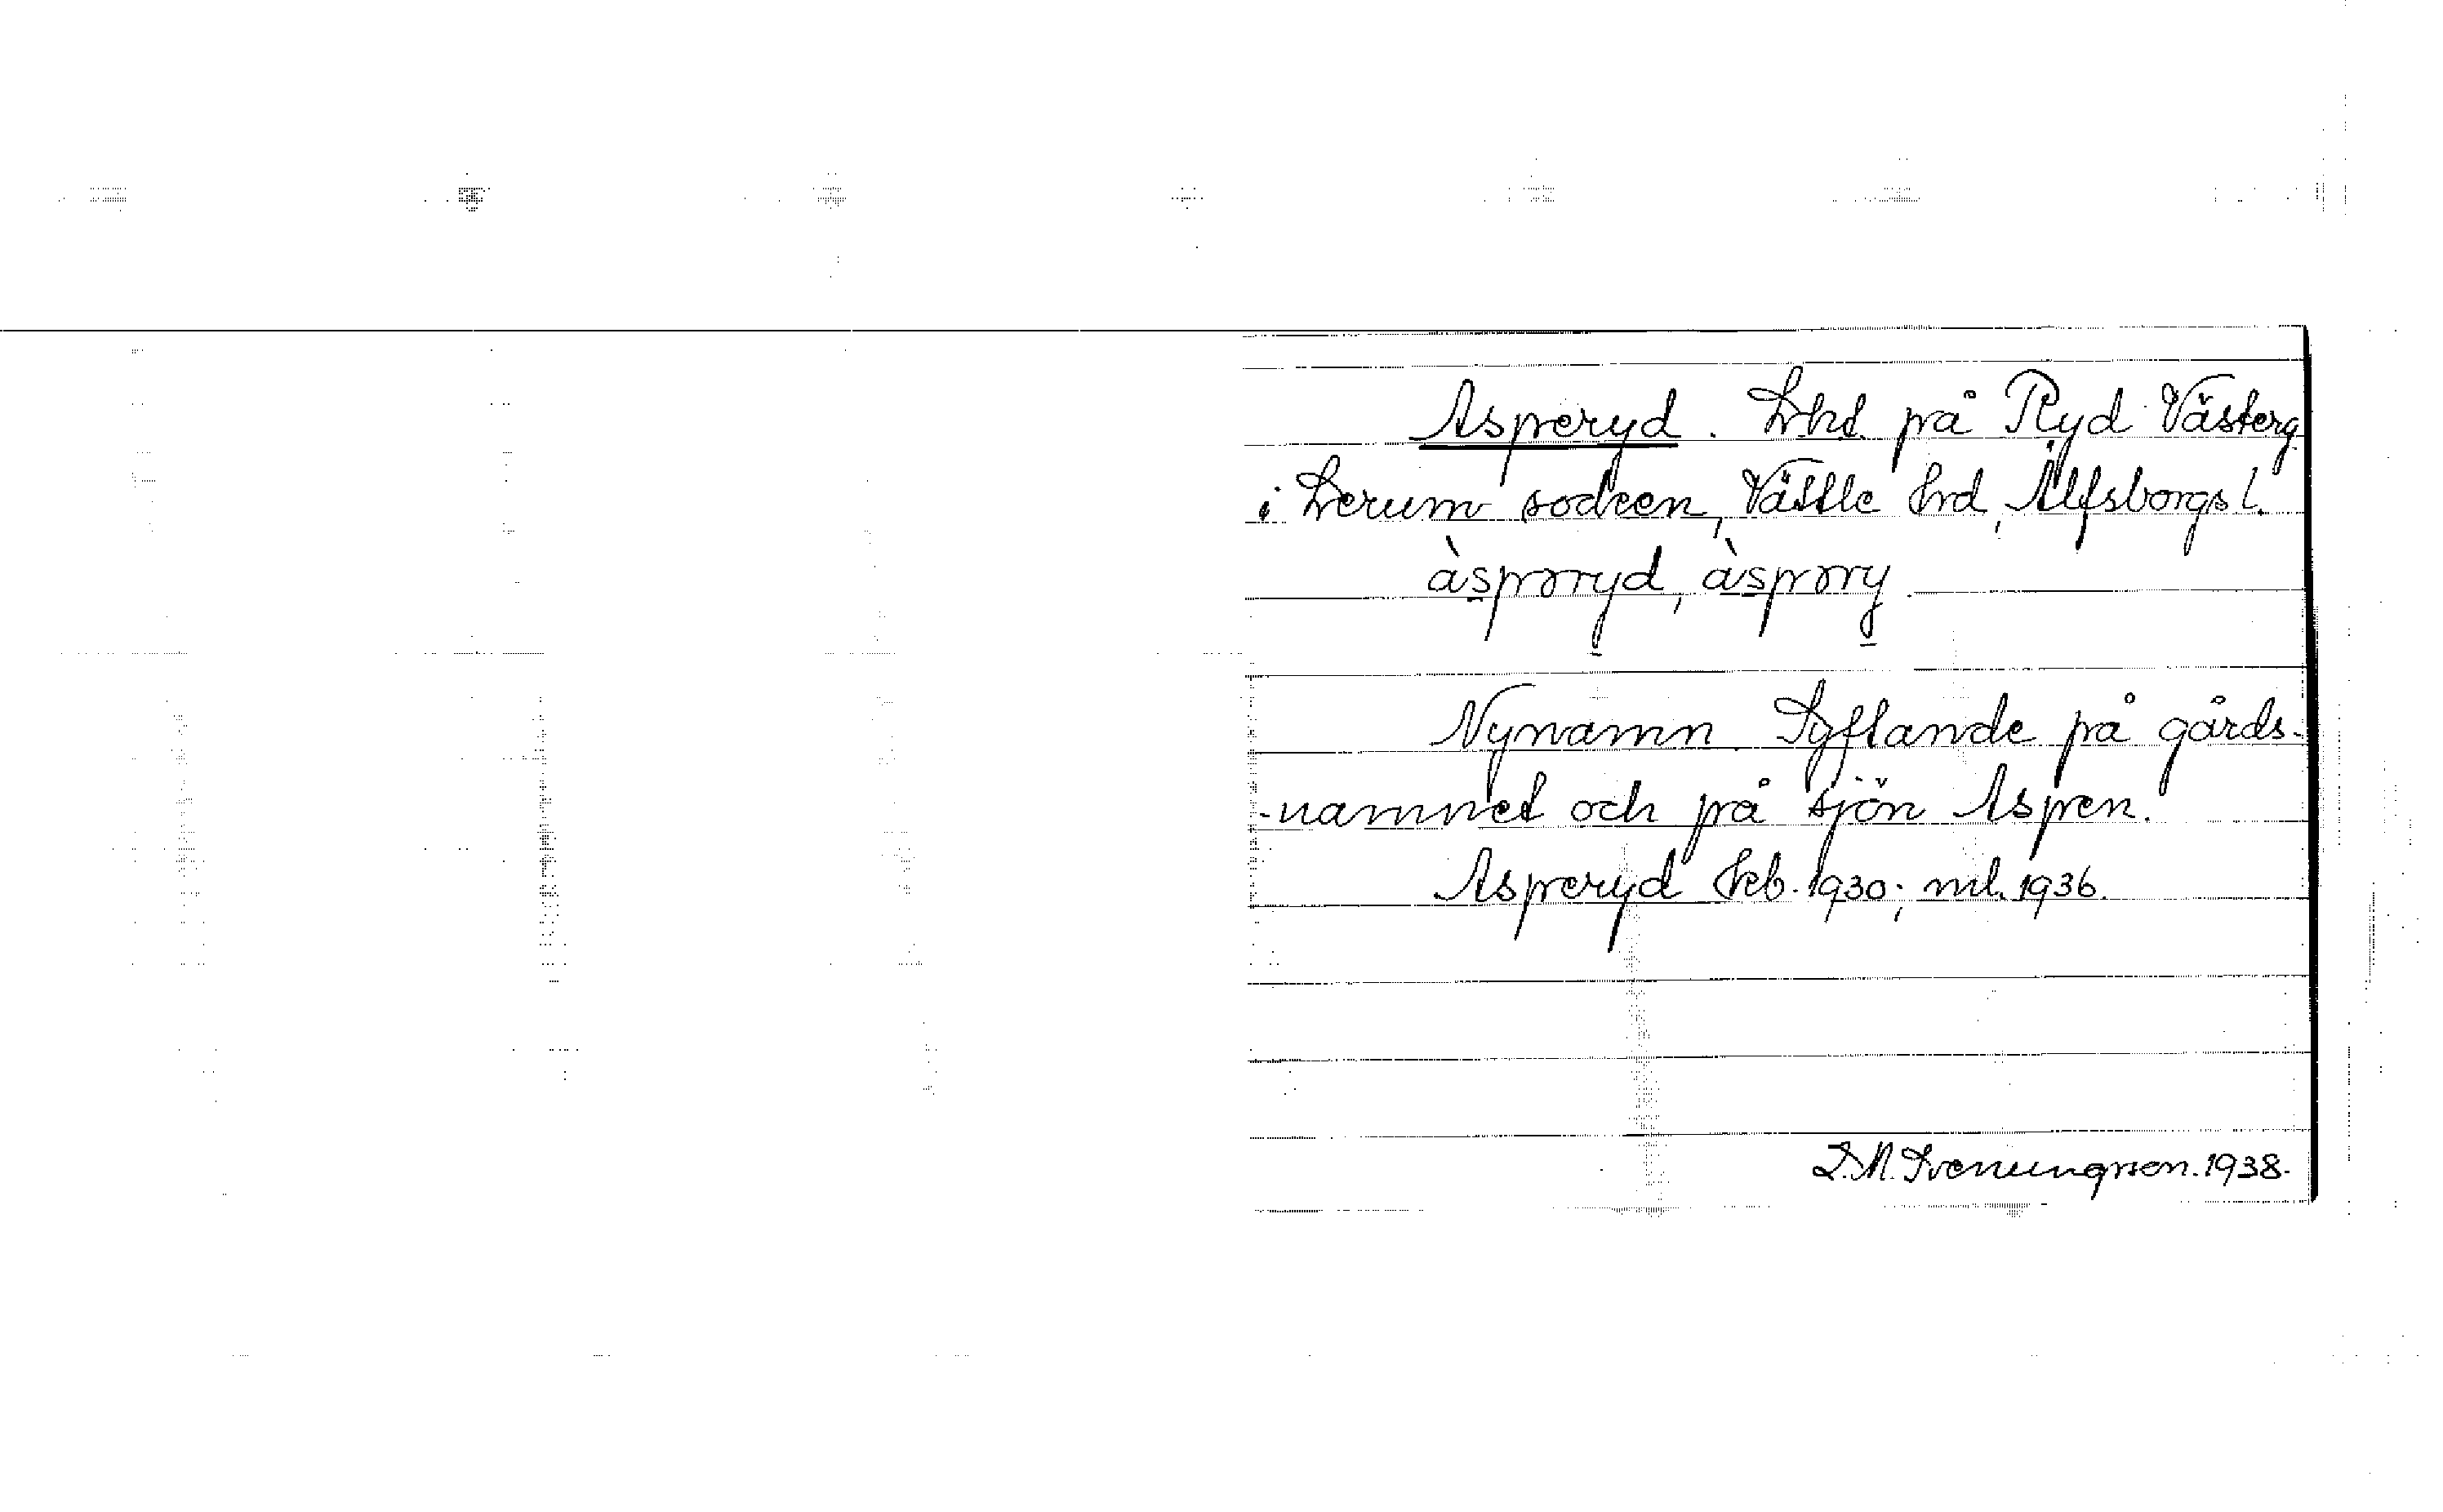 Asperyd. Lht på Ryd Västerg.
i Lerum socken, Vättle hrd, Älfsborgs l.
àspəryd, àspəry
Nynamn. Syftande på gårds-
-namnet och på sjön Aspen.
Asperyd kb. 1930; ml. 1936.
D.A. Svenungsson. 1938.